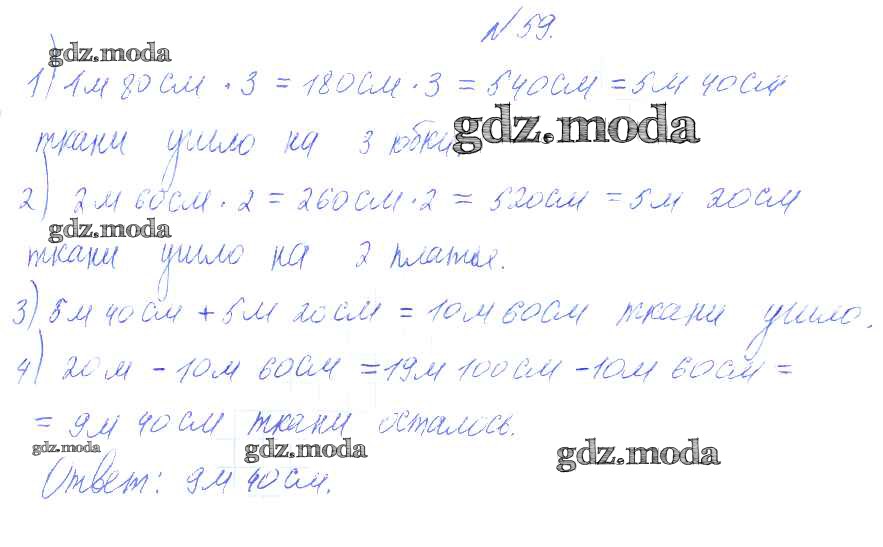 № 59.
gdz.moda
1) 1 м 80 см · 3 = 180 см · 3 = 540 см = 5 м 40 см
ткани ушло на 3 юбки.
gdz.moda
2) 2 м 60 см · 2 = 260 см · 2 = 520 см = 5 м 20 см
gdz.moda
ткани ушло на 2 платья.
3) 5 м 40 см + 5 м 20 см = 10 м 60 см ткани ушло.
4) 20 м - 10 м 60 см = 19 м 100 см - 10 м 60 см =
= 9 м 40 см ткани осталось.
gdz.moda gdz.moda gdz.moda
Ответ: 9 м 40 см.